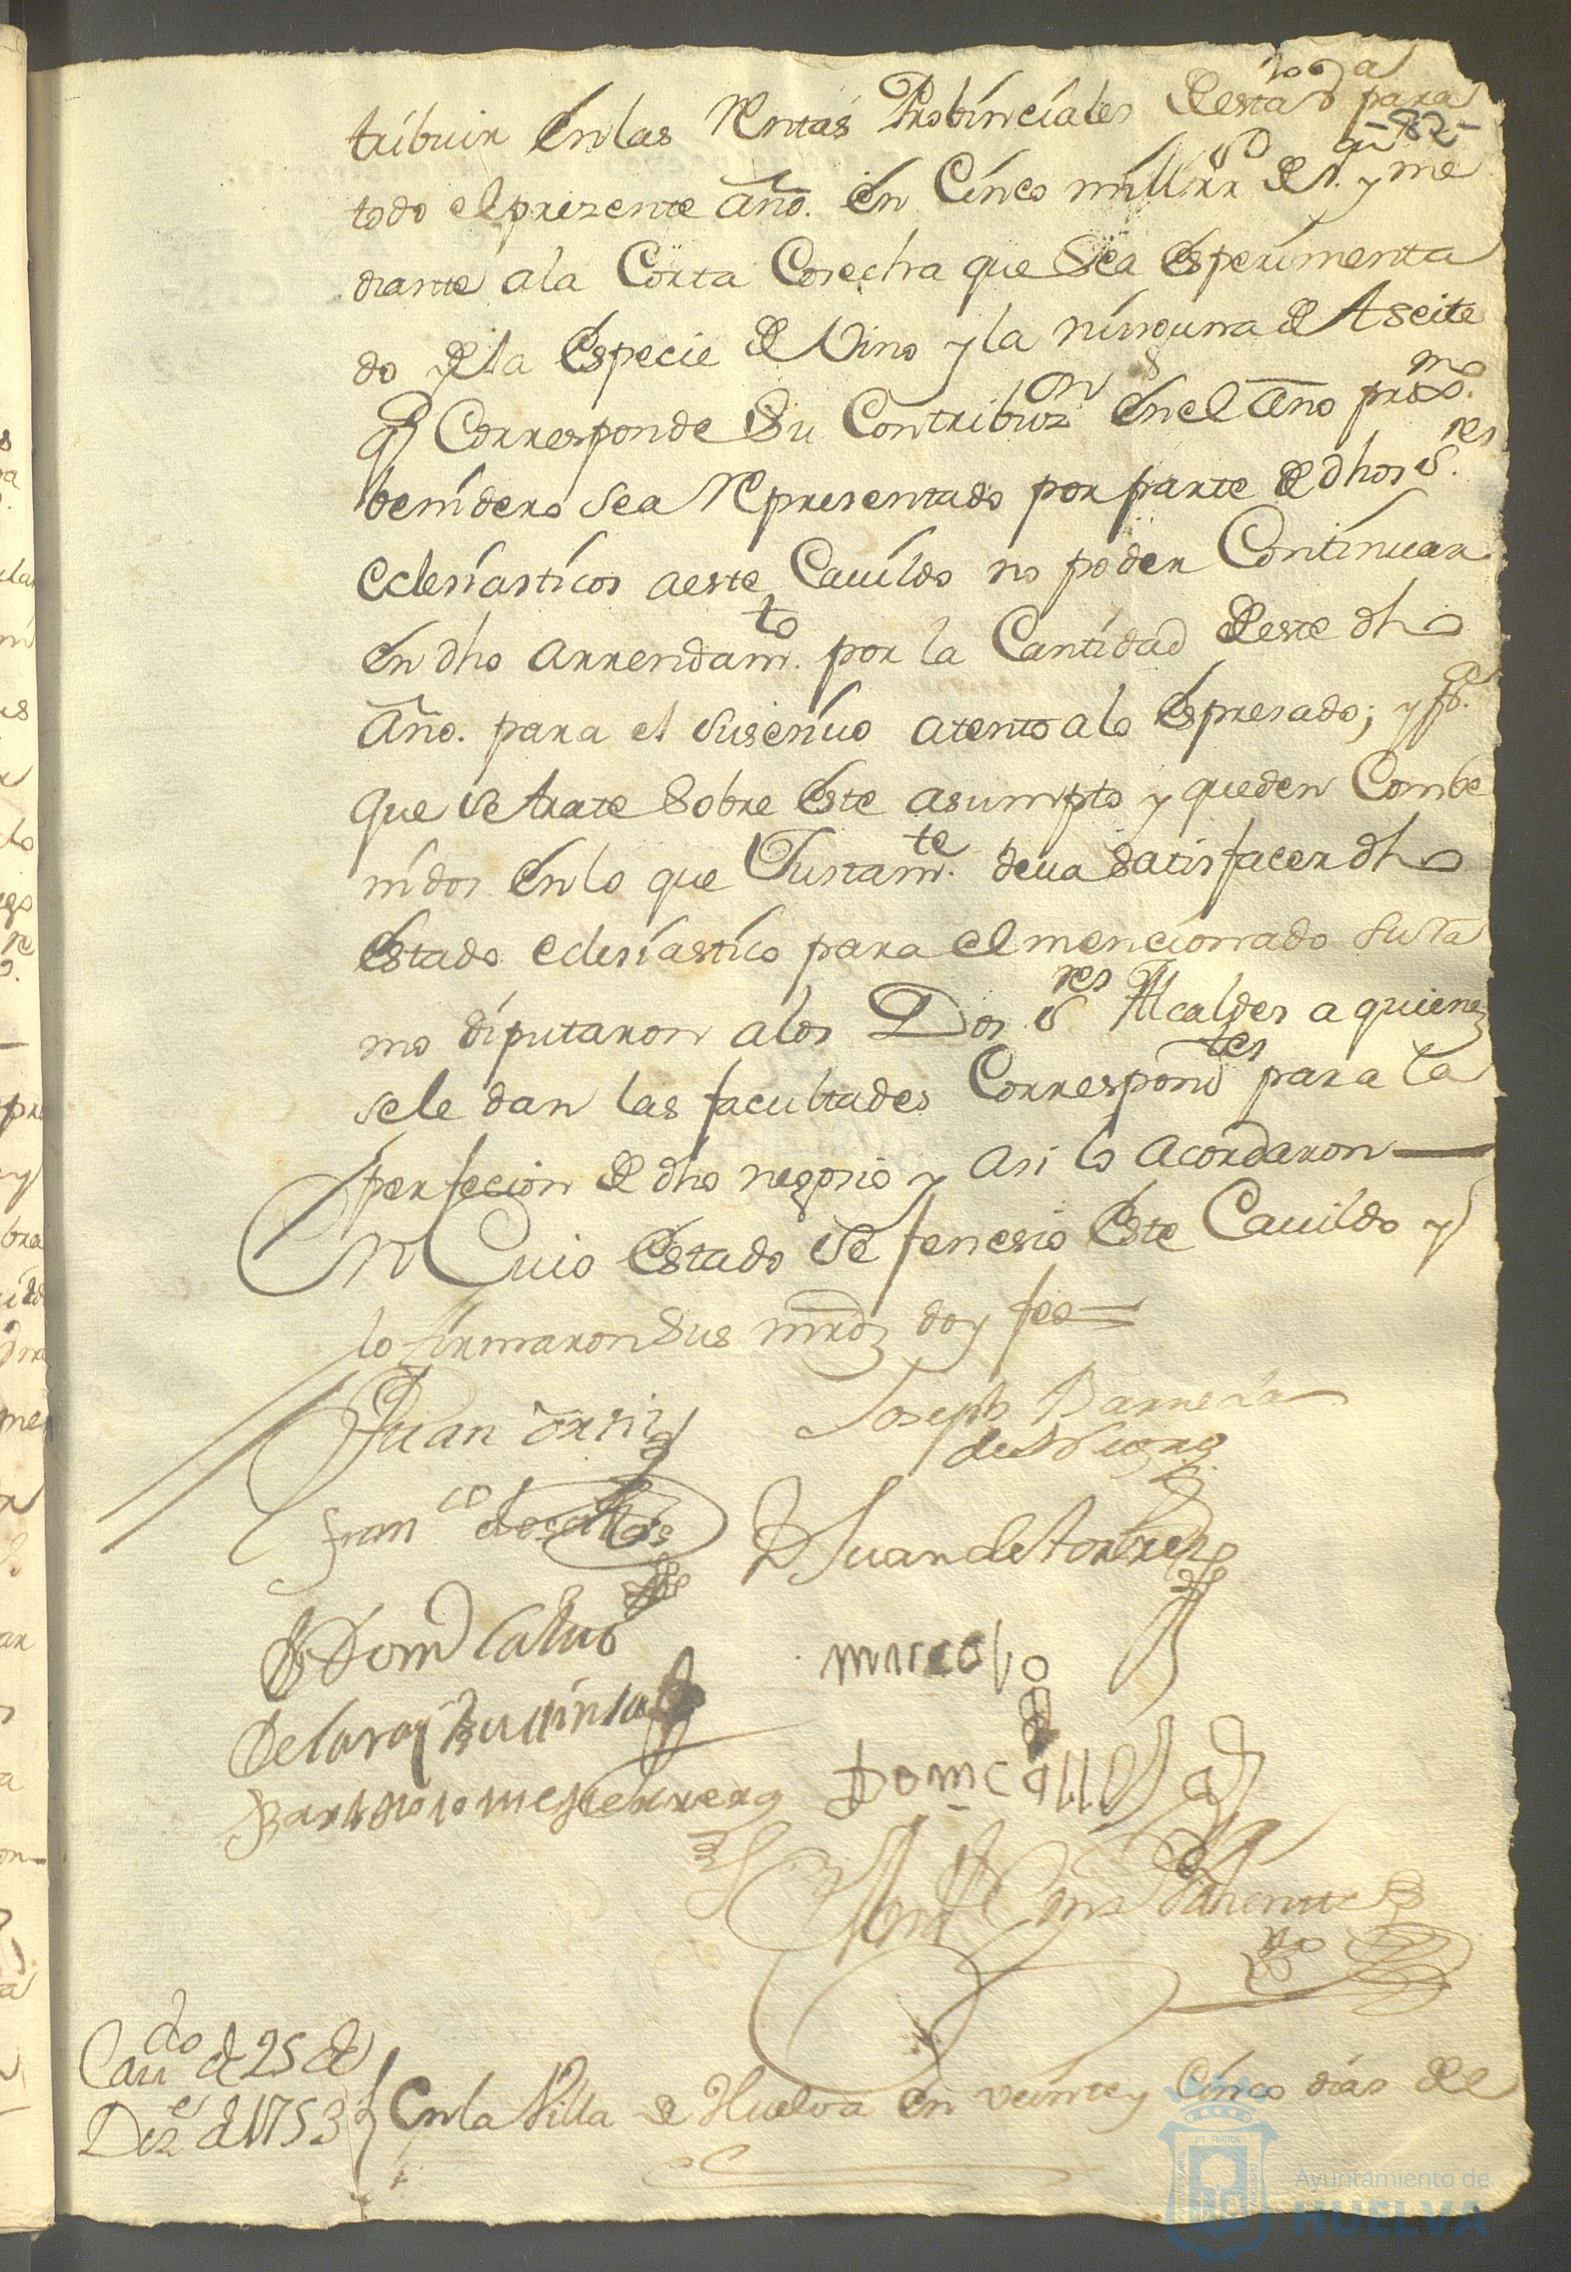 tribuir en las Rentas Probinciales desta v.ª para
-82-
todo el prezente año. en Cinco mill rr.s de v.n y me
diante ala Corta Cosecha que Sea esperimenta
do dela especie de Vino y la ninguna de Aseite
q.e Corresponde Su Contribuz.on en el año prox.mo
benidero sea Representado por parte de dhos S.res
eclesiasticos aeste Cauildo no poder Continuar
en dho arrendam.to por la Cantidad deeste dho
año. para el Susesiuo atento alo espresado; y p.a
que se trate Sobre este asumpto y queden Combe
nidos en lo que Justam.te deua Satisfacer dho
estado eclesiastico para el mencionado
mo diputaron alos Dos S.res Alcaldes a quienes
sele dan las facultades Correspond.tes para la
perfecion de dho negosio y asi lo acordaron
En Cuio estado se fenesio este Cauildo y
lo firmaron Sus mrdz doy fee=
Juan Ortiz
Joseph Barreda
Fran.co de
D Juan de Torres
D Dom.o Caluo
de la
Bartolome Herrera
Cau.do de 25 de
Diz.e d 1753
En la Villa de Huelva en veinte y Cinco dias de
Ayuntamiento de
HUELVA